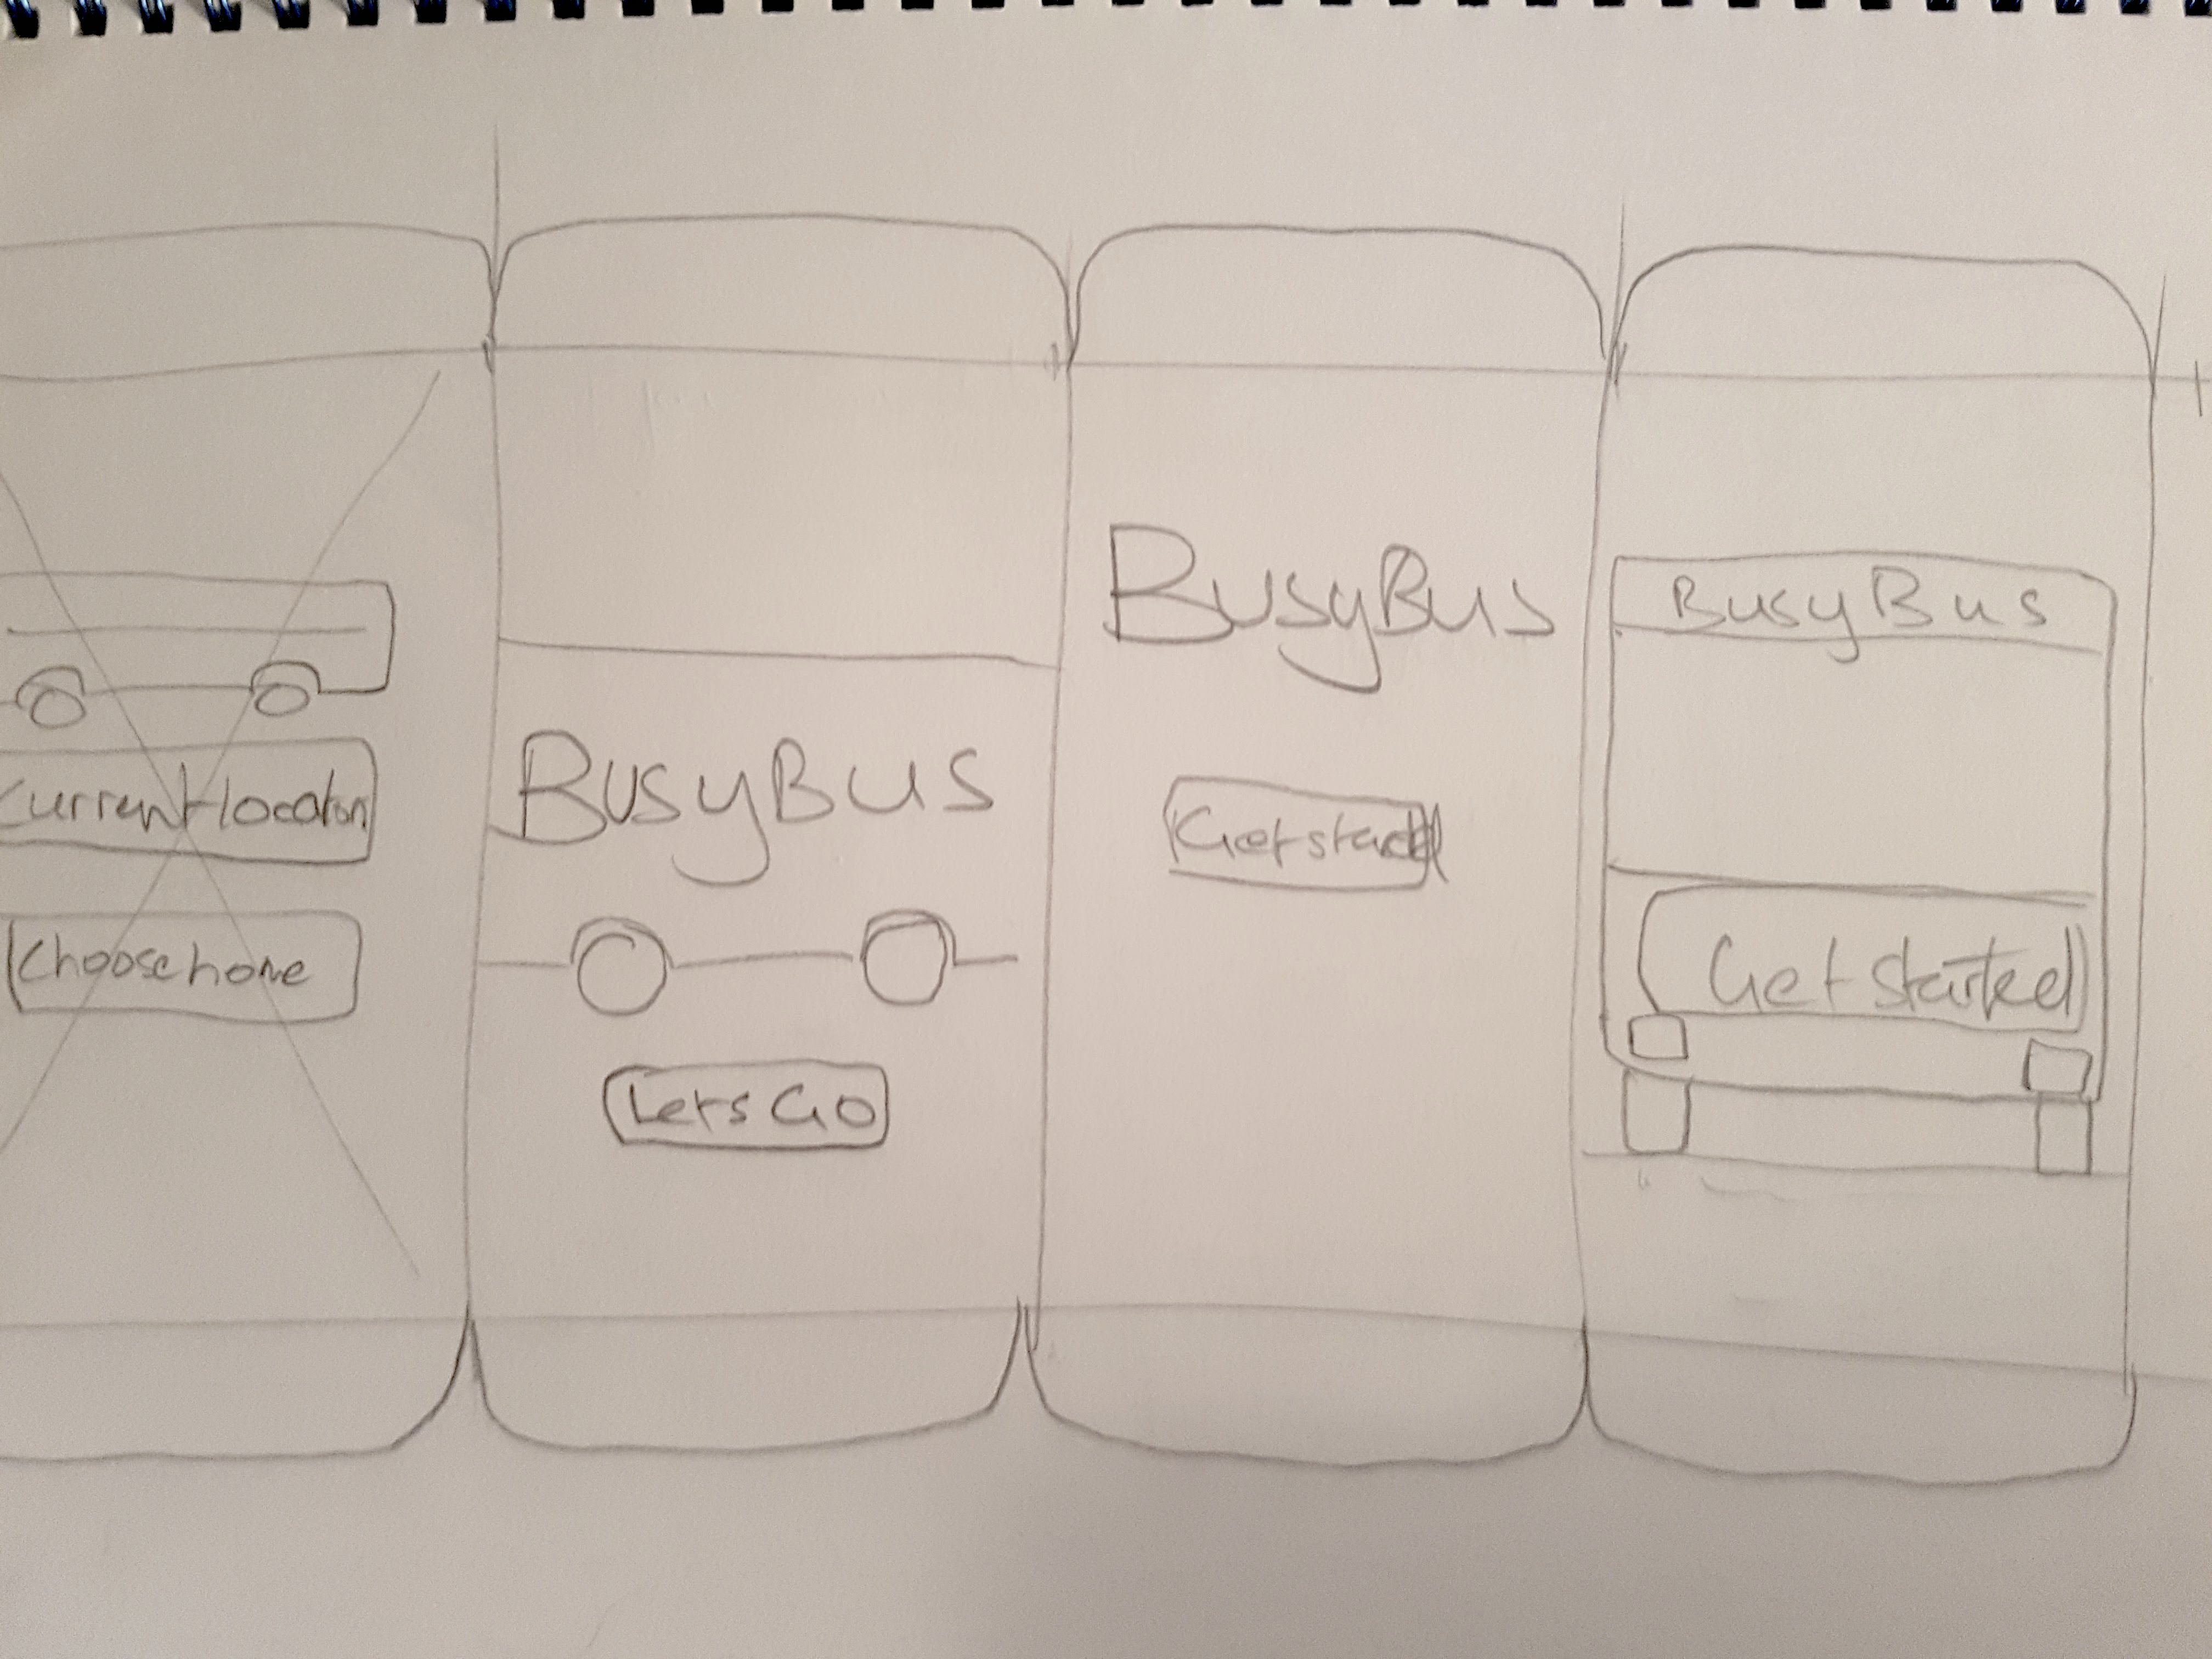 Current location
Choose home
BusyBus
Lets Go
BusyBus
Get started
BusyBus
Get Started